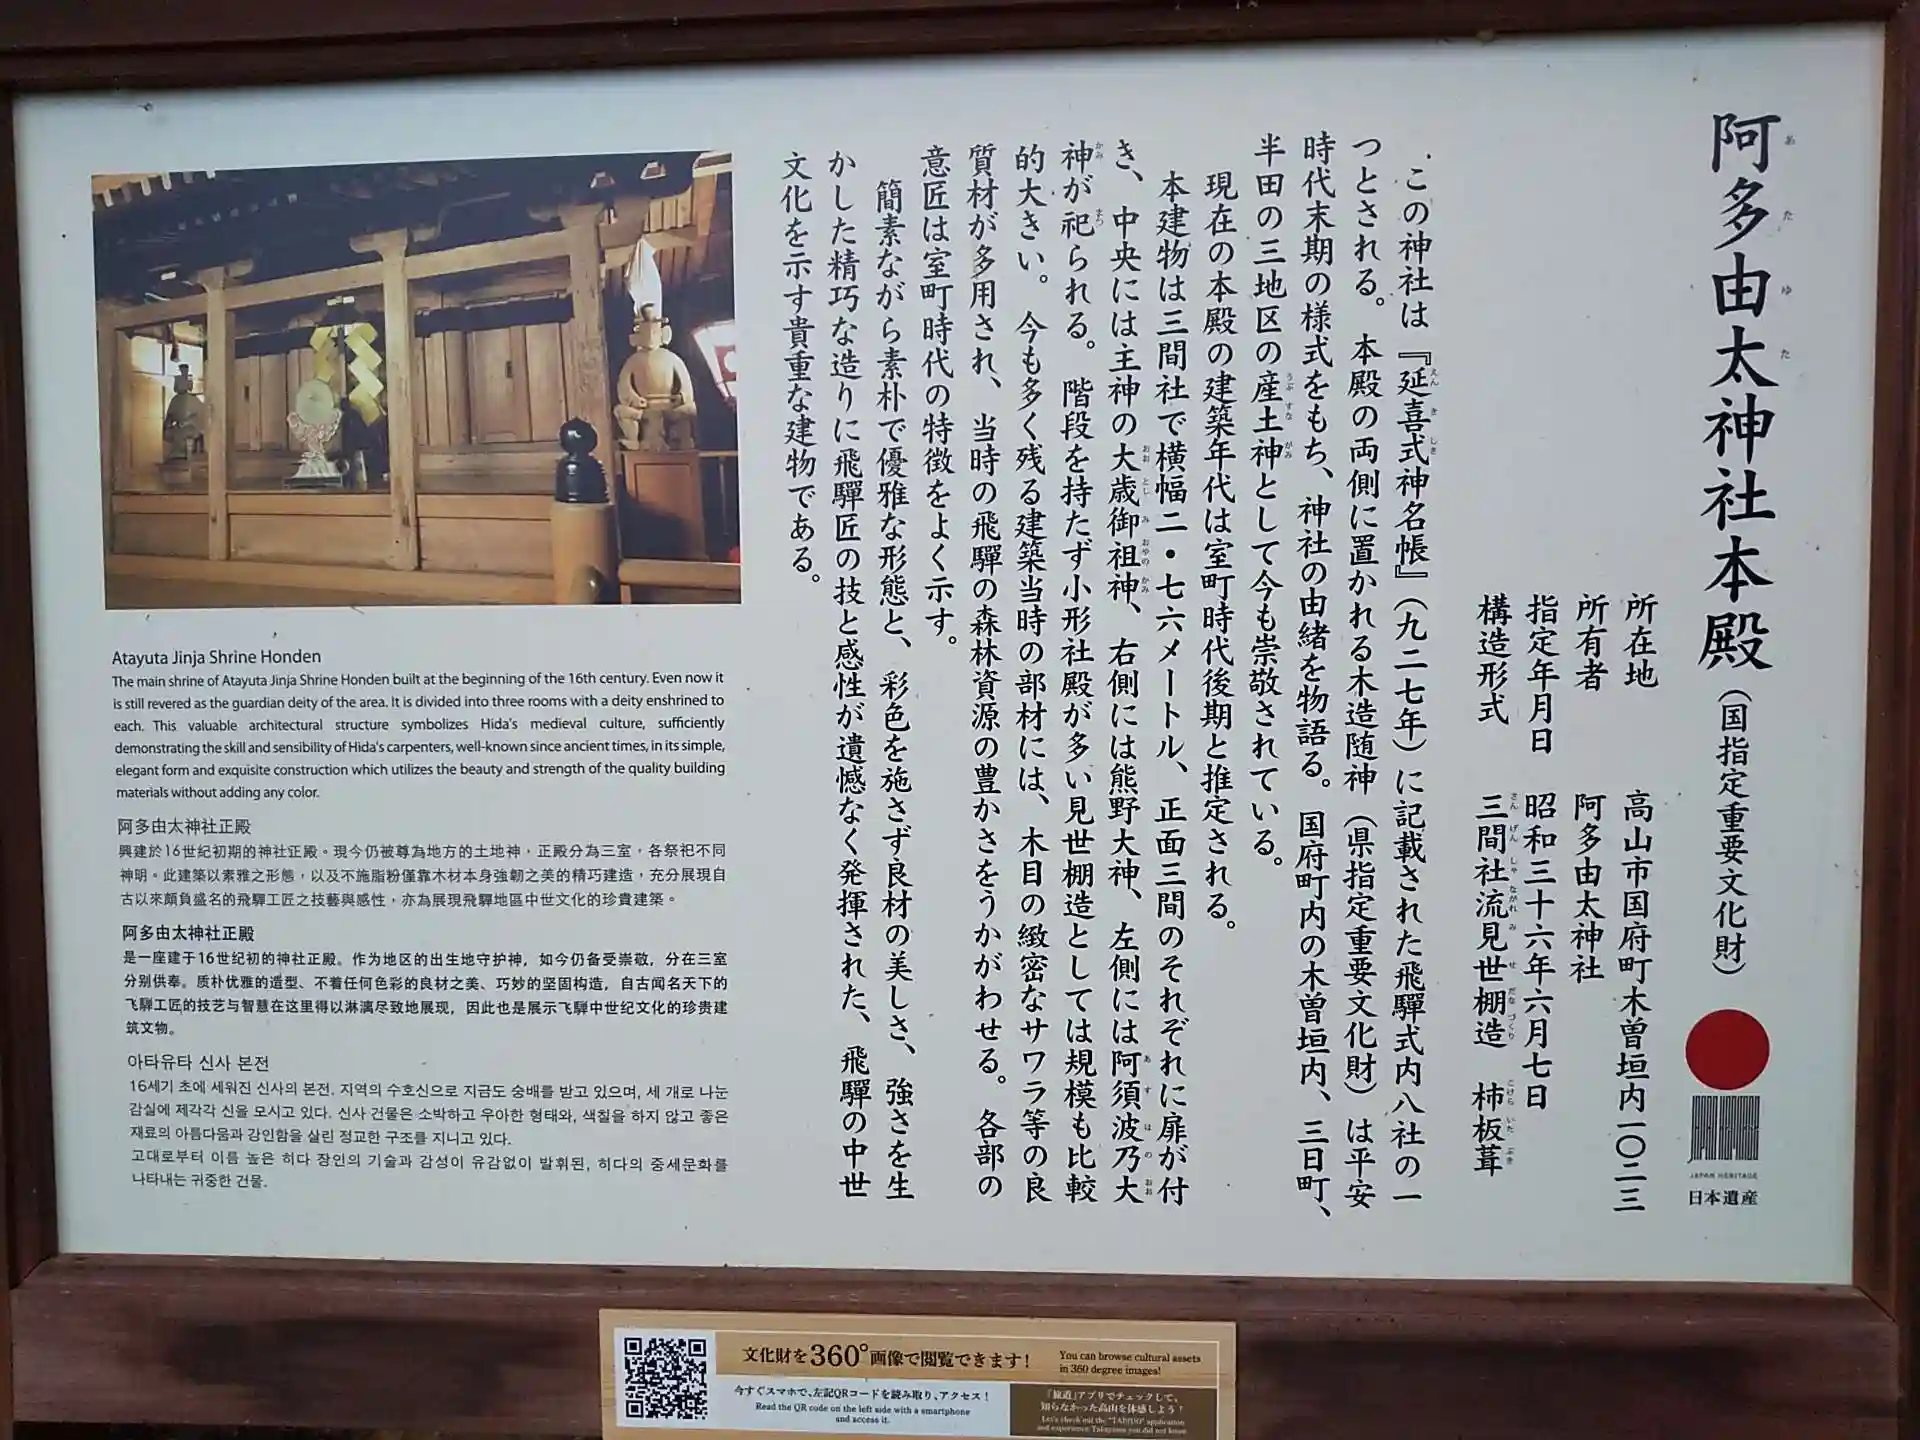 阿多由太神社本殿(国指定重要文化財)
所在地 高山市国府町木曽垣内一〇二三
所有者 阿多由太神社
指定年月日 昭和三十六年六月七日
構造形式 三間社流見世棚造 杮板葺
この神社は『延喜式神名帳』(九二七年)に記載された飛驒式内八社の一
つとされる。本殿の両側に置かれる木造随神(県指定重要文化財)は平安
時代末期の様式をもち、神社の由緒を物語る。国府町内の木曽垣内、三日町、
半田の三地区の産土神として今も崇敬されている。
現在の本殿の建築年代は室町時代後期と推定される。
本建物は三間社で横幅二・七六メートル、正面三間のそれぞれに扉が付
き、中央には主神の大歳御祖神、右側には熊野大神、左側には阿須波乃大
神が祀られる。階段を持たず小形社殿が多い見世棚造としては規模も比較
的大きい。今も多く残る建築当時の部材には、木目の緻密なサワラ等の良
質材が多用され、当時の飛驒の森林資源の豊かさをうかがわせる。各部の
意匠は室町時代の特徴をよく示す。
簡素ながら素朴で優雅な形態と、彩色を施さず良材の美しさ、強さを生
かした精巧な造りに飛驒匠の技と感性が遺憾なく発揮された、飛驒の中世
文化を示す貴重な建物である。
JAPAN HERITAGE
日本遺産
Atayuta Jinja Shrine Honden
The main shrine of Atayuta Jinja Shrine Honden built at the beginning of the 16th century. Even now it
is still revered as the guardian deity of the area. It is divided into three rooms with a deity enshrined to
each. This valuable architectural structure symbolizes Hida's medieval culture, sufficiently
demonstrating the skill and sensibility of Hida's carpenters, well-known since ancient times, in its simple,
elegant form and exquisite construction which utilizes the beauty and strength of the quality building
materials without adding any color.
阿多由太神社正殿
興建於16世紀初期的神社正殿。現今仍被尊為地方的土地神,正殿分為三室,各祭祀不同
神明。此建築以素雅之形態,以及不施脂粉僅靠木材本身強韌之美的精巧建造,充分展現自
古以來頗負盛名的飛驒工匠之技藝與感性,亦為展現飛驒地區中世文化的珍貴建築。
阿多由太神社正殿
是一座建于16世纪初的神社正殿。作为地区的出生地守护神,如今仍备受崇敬,分在三室
分别供奉。质朴优雅的造型、不着任何色彩的良材之美、巧妙的坚固构造,自古闻名天下的
飞騨工匠的技艺与智慧在这里得以淋漓尽致地展现,因此也是展示飞騨中世纪文化的珍贵建
筑文物。
아타유타 신사 본전
16세기 초에 세워진 신사의 본전. 지역의 수호신으로 지금도 숭배를 받고 있으며, 세 개로 나눈
감실에 제각각 신을 모시고 있다. 신사 건물은 소박하고 우아한 형태와, 색칠을 하지 않고 좋은
재료의 아름다움과 강인함을 살린 정교한 구조를 지니고 있다.
고대로부터 이름 높은 히다 장인의 기술과 감성이 유감없이 발휘된, 히다의 중세문화를
나타내는 귀중한 건물.
文化財を360°画像で閲覧できます!
You can browse cultural assets
in 360 degree images!
今すぐスマホで、左記QRコードを読み取り、アクセス!
Read the QR code on the left side with a smartphone
and access it.
「旅道」アプリでチェックして、
知らなかった高山を体感しよう!
Let's check out the "TABIDO" application
and experience Takayama you did not know